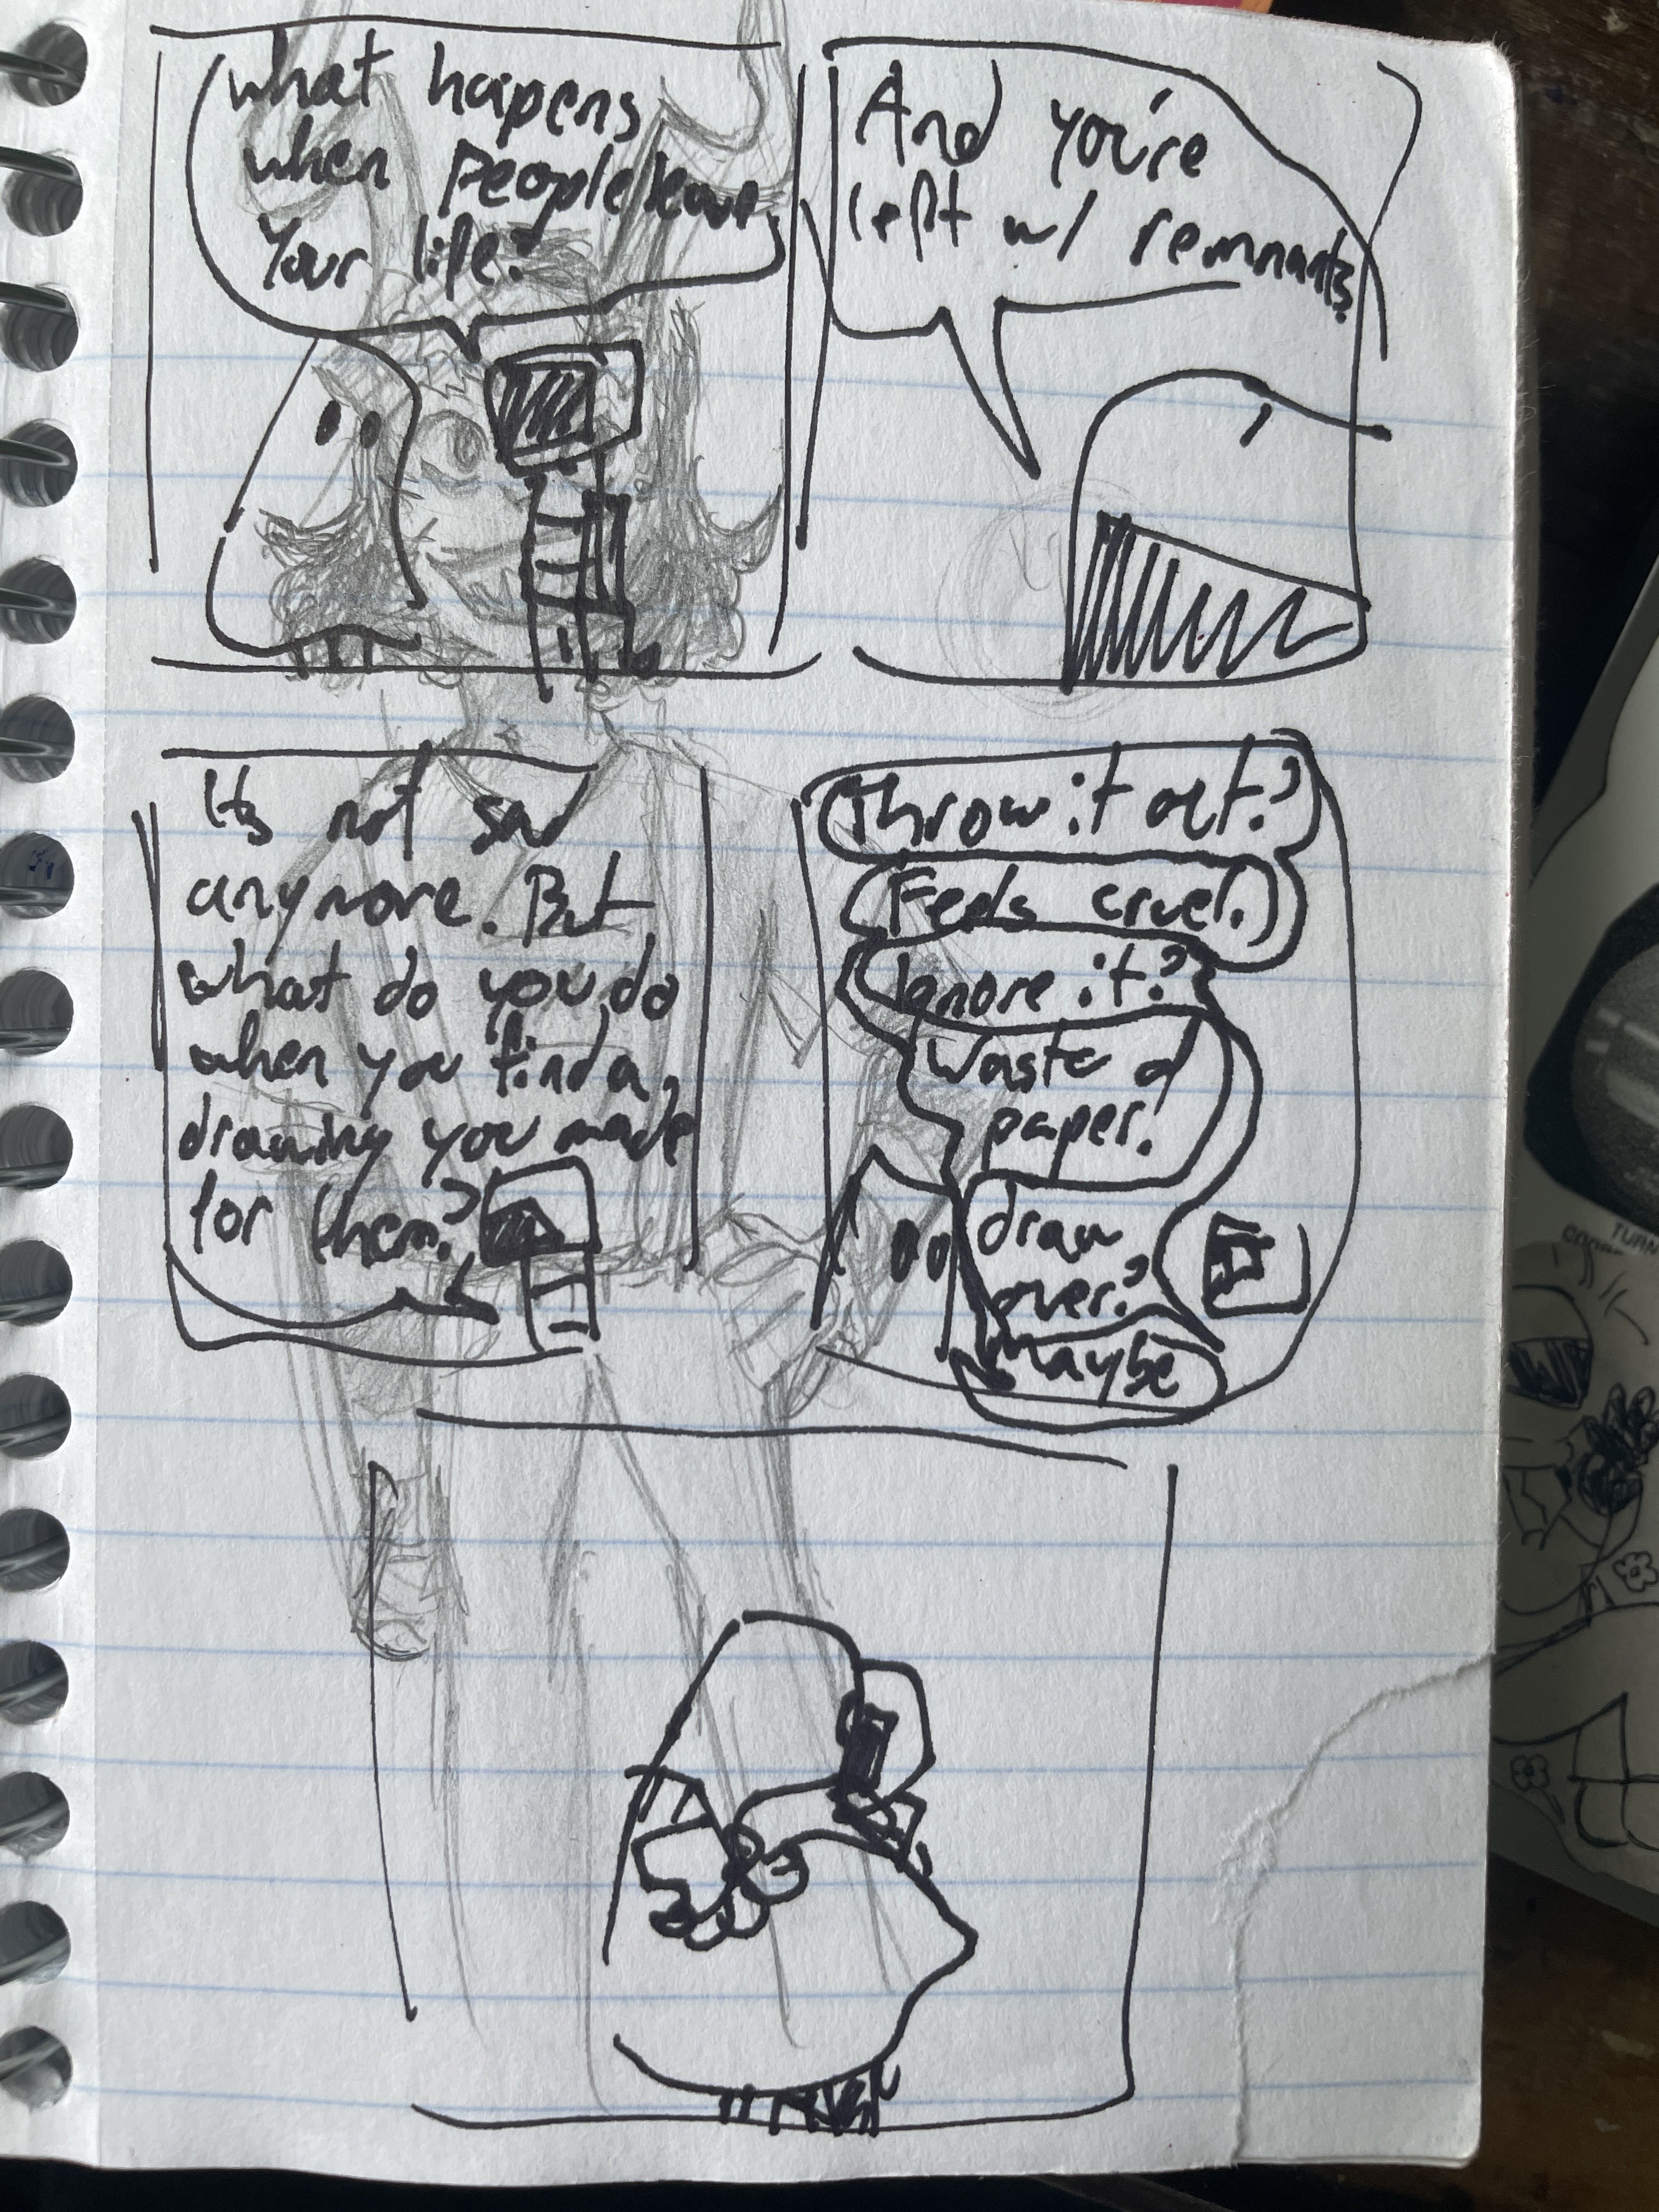 What hapens
when people leave
your life?
And you're
left w/ remnants?
Its not sad
anymore. But
what do you do
when you find a
drawing you made
for them?
Throw it out?
Feels cruel.
Ignore it?
Waste of
paper.
draw
over?
Maybe
TURN